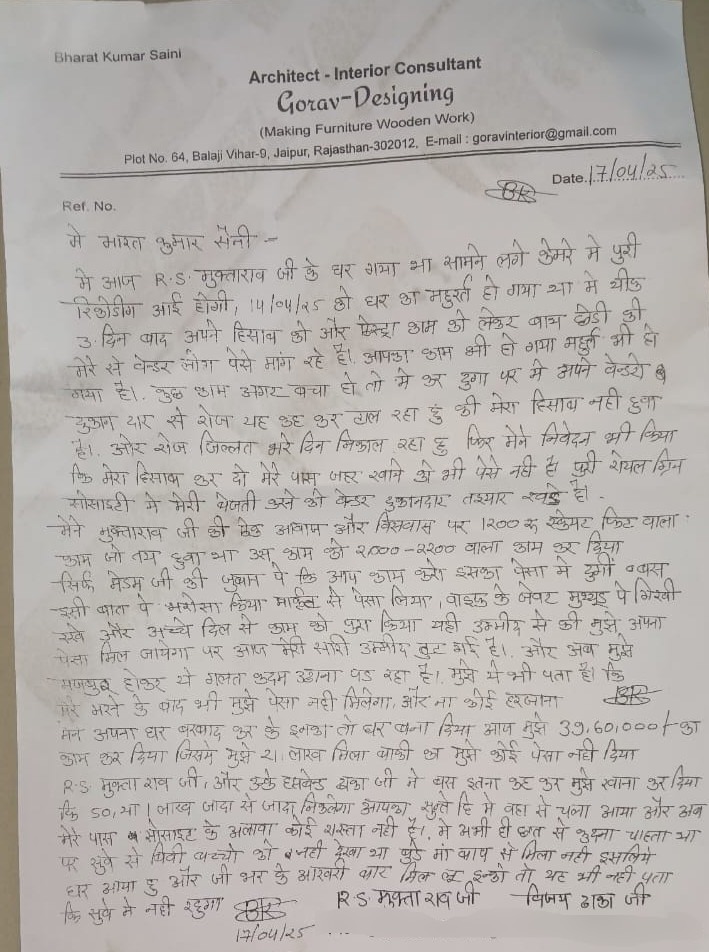 Bharat Kumar Saini
Architect - Interior Consultant
Gorav-Designing
(Making Furniture Wooden Work)
Plot No. 64, Balaji Vihar-9, Jaipur, Rajasthan-302012, E-mail : goravinterior@gmail.com
Date.17/04/25
Ref. No.
मे भारत कुमार सैनी -
मे आज R.S. मुक्ताराव जी के घर गया था सामने लगे केमरे मे पुरी
रिकोडींग आई होगी, 14/04/25 को घर का महुर्त हो गया था मे ठीक
3. दिन बाद अपने हिसाब को और एस्ट्रा काम को लेकर बात छेडी की
मेरे से वेन्डर लोग पेसे मांग रहे है। आपका काम भी हो गया महुर्त भी हो
गया है। कुछ काम अगर बचा हो तो मे कर दुगा पर मे अपने वेन्डरो
दुकान दार से रोज यह कह कर टाल रहा हुं की मेरा हिसाब नही हुवा
है। ओर रोज जिल्लत भरे दिन निकाल रहा हु फिर मेने निवेदन भी किया
कि मेरा हिसाब कर दो मेरे पास जहर खाने को भी पेसे नही है। पुरी रोयल ग्रिन
सोसाइटी मे मेरी बेजती करने को वेन्डर दुकानदार तइयार खडे है।
मेने मुक्ताराव जी की एक आवाज और विसवास पर 1200 रु स्केयर फिट वाला
काम जो तय हुवा था उस काम को 2,000-2200 वाला काम कर दिया
सिर्फ मेडम जी की जुबान पे कि आप काम करो इसका पेसा मे दुगीं बस
इसी बात पे भरोसा किया मार्केट से पेसा लिया, वाइफ के जेवर मुथ्थुड पे गिरवी
रखे और अच्चे दिल से काम को पुरा किया यही उम्मीद से की मुझे अपना
पेसा मिल जायेगा पर आज मेरी सारी उम्मीद तुट गई है। और अब मुझे
मजबुर होकर ये गलत कदम उठाना पड रहा है। मुझे ये भी पता है। कि
मेरे मरने के बाद भी मुझे पेसा नही मिलेगा, और ना कोई हरजाना
मेने अपना घर बरबाद कर के इनका तो घर बना दिया आप मुझे 39,60,000/- का
काम कर दिया जिसमे मुझे 21, लाख मिला बाकी का मुझे कोई पेसा नही दिया
R.S. मुक्ता राव जी, और उनके हसबेन्ड ढाका जी ने बस इतना कह कर मुझे रवाना कर दिया
कि 50, या 1 लाख जादा से जादा निकलेगा आपका सुनते हि मे वहा से चला आया और अब
मेरे पास सोसाइट के अलावा कोई रास्ता नही है। मे अभी ही छत से कुदना चाहता था
पर सुबे से बिवी बच्चो को नही देखा था बुडे मां बाप से मिला नही इसलिये
घर आया हु और जी भर के आखरी बार मिल लु इनको तो यह भी नही पता
कि सुबे मे नही रहुगा
R.S. मुक्ता राव जी विजय ढाका जी
17/04/25